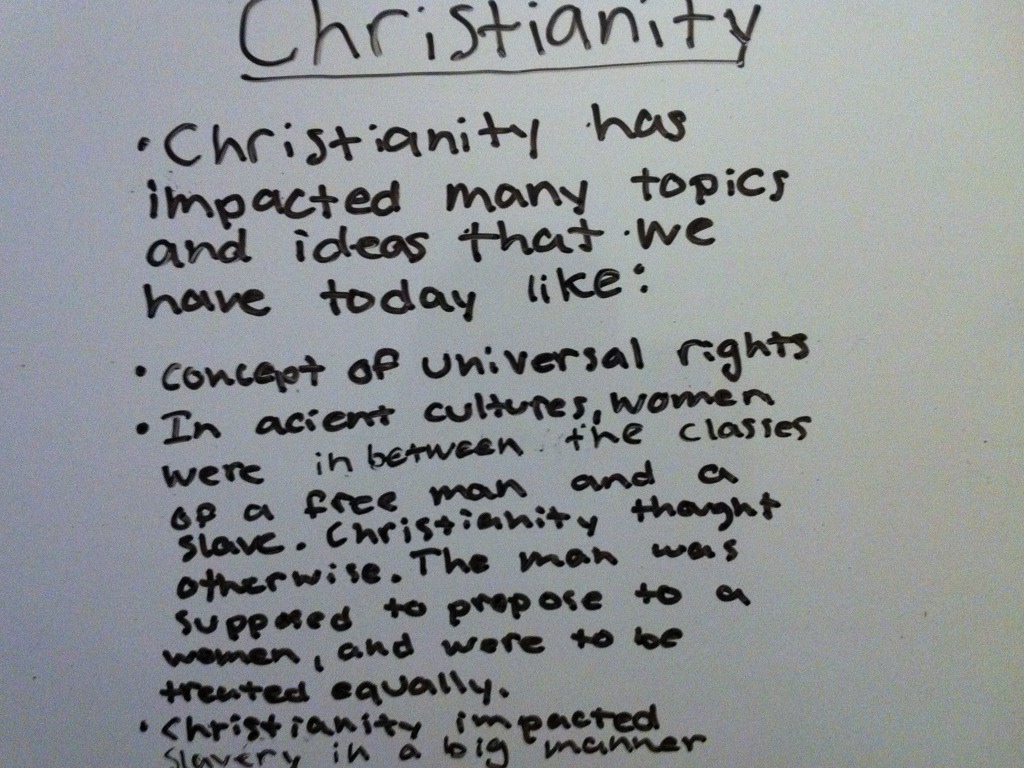 Christianity
• Christianity has
impacted many topics
and ideas that we
have today like:
• concept of universal rights
• In acient cultures, women
were in between the classes
of a free man and a
slave. Christianity thought
otherwise. The man was
supposed to propose to a
women, and were to be
treated equally.
• Christianity impacted
slavery in a big manner